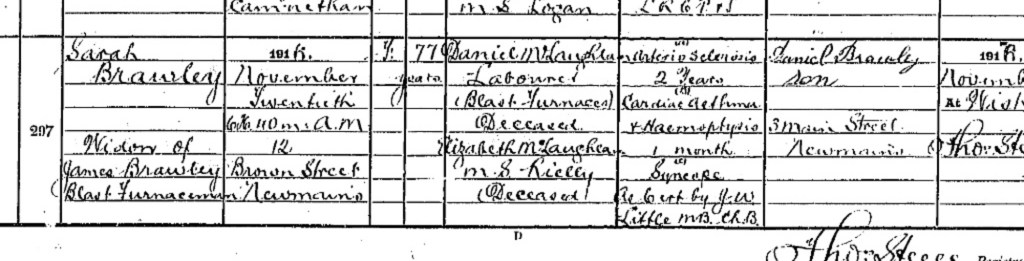 Cambnethan
M.S. Logan
L R C P & S
297
Sarah
Brawley
Widow of
James Brawley
Blast Furnaceman
191
November
Twentieth
6h. 40m. A.M
12
Brown Street
Newmains
F.
77
years
Daniel McLaughlan
Labourer
(Blast Furnaces)
(Deceased
Elizabeth McLaughlan
M.S. Kielly
(Deceased)
Arterio Sclerosis
2 Years
Cardiac Asthma
& Haemoptysis
1 month
Syncope
As Cert by J.W
Little M.B. Ch.B.
Daniel Brawley
Son
3 Main Street
Newmains
191
Novemb
At Wish
Tho. Ste
D
Tho. Steees
Registra